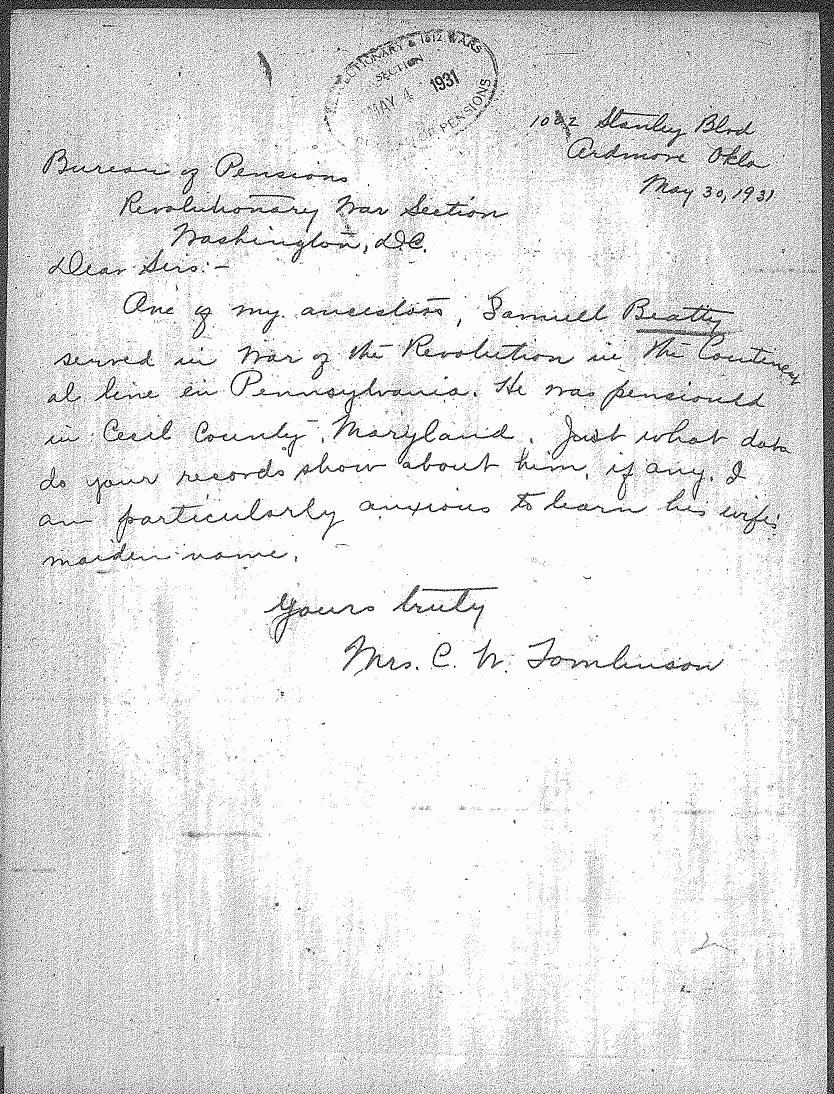 REVOLUTIONARY & 1812 WARS
SECTION
MAY 4 1931
PENSIONS
Stanley Blvd
Ardmore Okla
May 30, 1931
Bureau of Pensions
Revolutionary War Section
Washington, D.C.
Dear Sirs:-
One of my ancestors, Samuell Beatty
served in War of the Revolution in the Continen
al line in Pennsylvania. He was pensioned
in Cecil County, Maryland. Just what data
do your records show about him, if any. I
am particularly anxious to learn his wifes
maiden name.
Yours truly
Mrs. C. W. Tomlinson